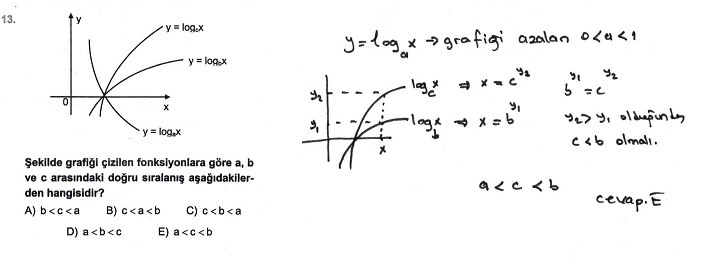 13.
y
y = log꜀x
y = logᵦx
0
x
y = logₐx
Şekilde grafiği çizilen fonksiyonlara göre a, b
ve c arasındaki doğru sıralanış aşağıdakiler-
den hangisidir?
A) b < c < a B) c < a < b C) c < b < a
D) a < b < c E) a < c < b
y = logₐx → grafiği azalan 0 < a < 1
y₂ log꜀x ⇒ x = c^y₂ b^y₁ = c^y₂
y₁ log_b x ⇒ x = b^y₁ y₂ > y₁ olduğundan
x c < b olmalı.
a < c < b
cevap. E